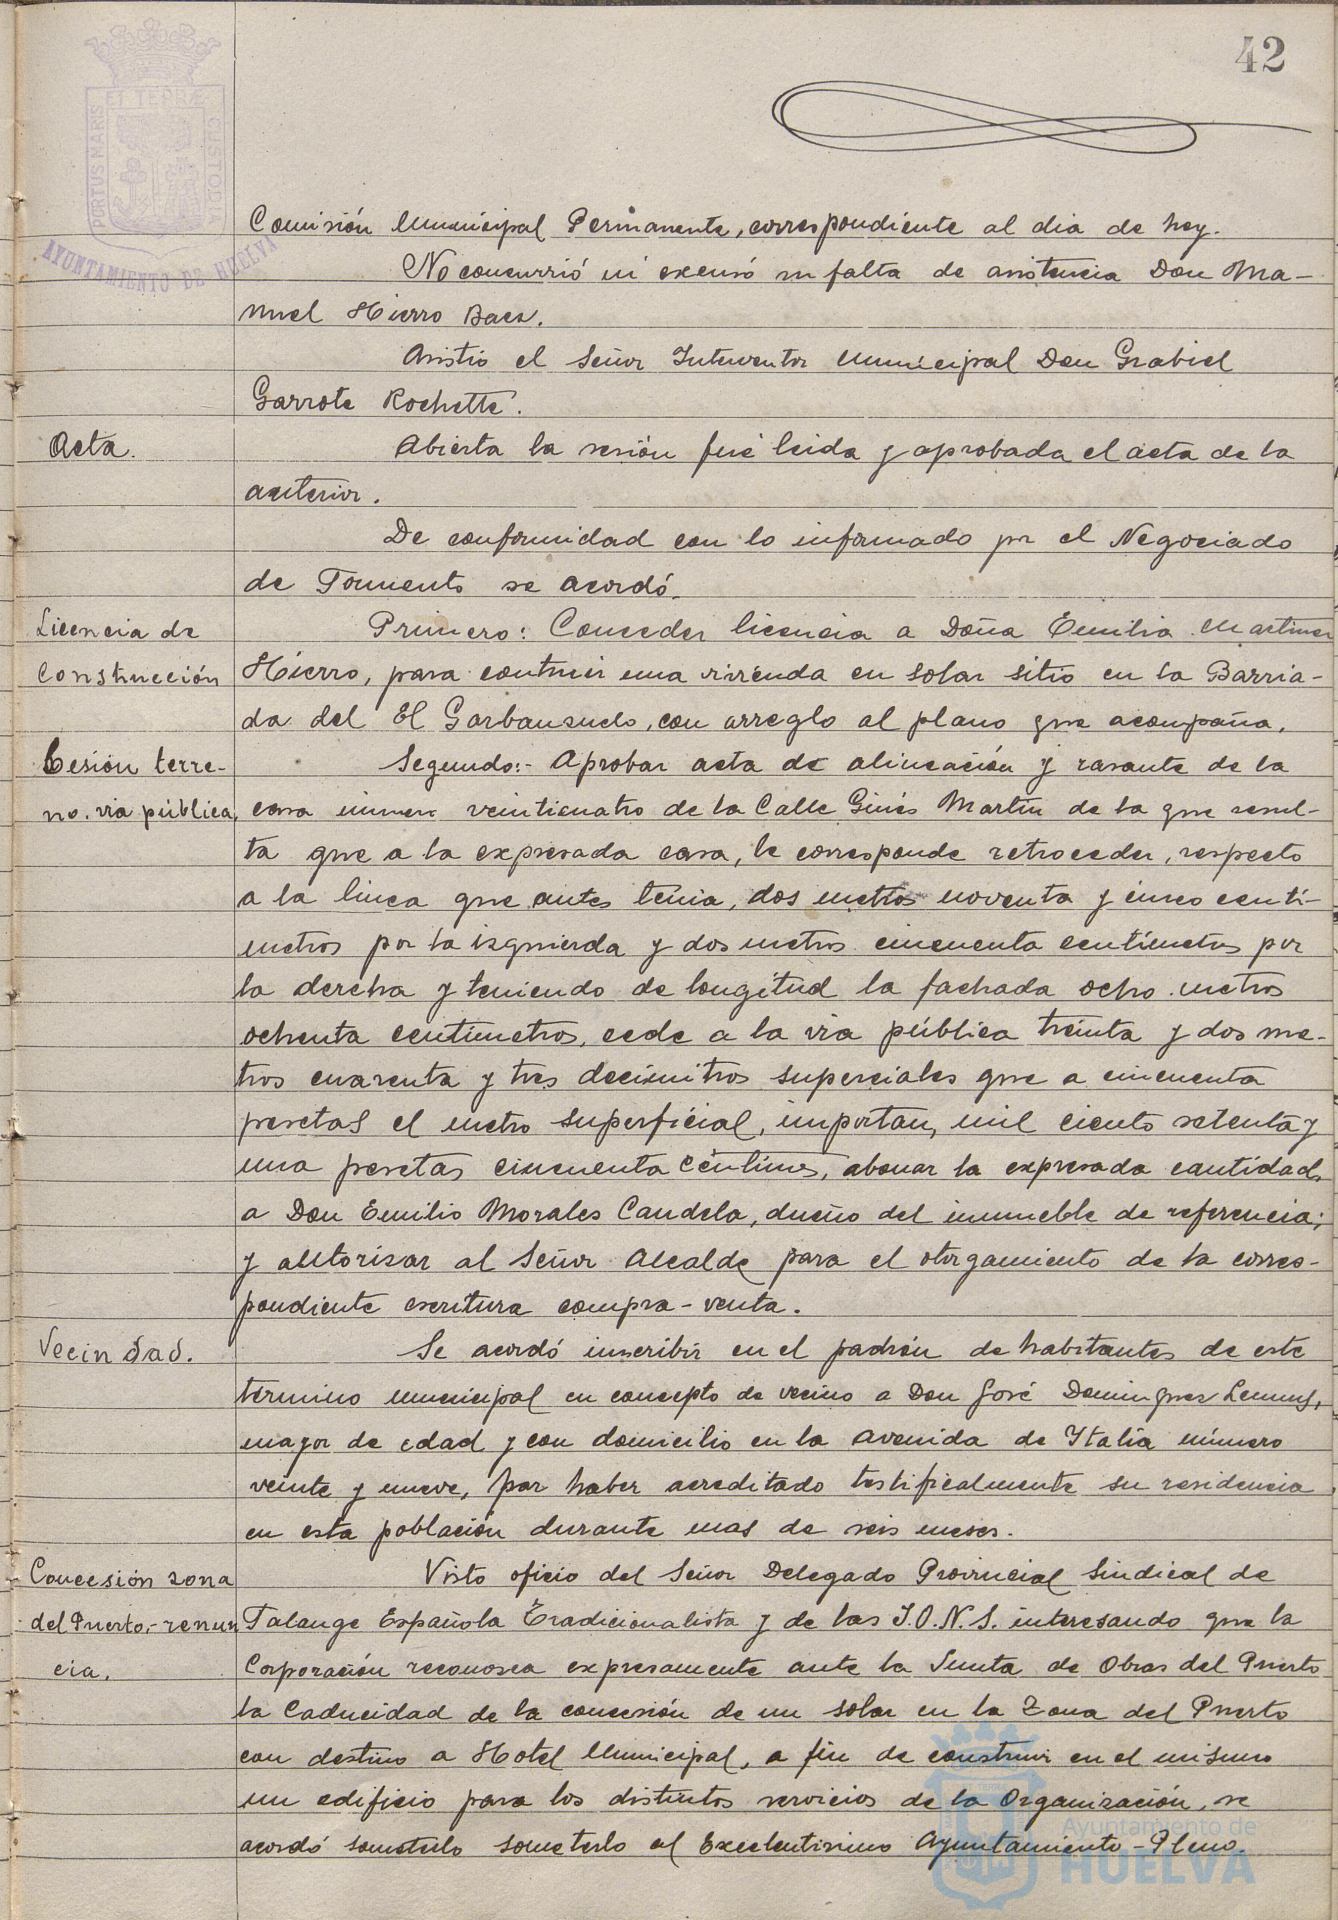 42
PORTUS MARIS ET TERRÆ CUSTODIA
AYUNTAMIENTO DE HUELVA
Comisión Municipal Permanente, correspondiente al dia de hoy.
No concurrió ni excusó su falta de asistencia Don Ma-
nuel Hierro Baez.
Asistio el Señor Interventor Municipal Don Grabiel
Garrote Rochette.
Acta.
Abierta la sesión fué leida y aprobada el acta de la
anterior.
De conformidad con lo informado por el Negociado
de Fomento se acordó.
Licencia de
Construcción
Primero: Conceder licencia a Doña Emilia Martinez
Hierro, para contruir una vivienda en solar sitio en la Barria-
da del El Garbanzuelo, con arreglo al plano que acompaña.
Cesión terre-
no via pública.
Segundo:- Aprobar acta de alineación y rasante de la
casa número veinticuatro de la Calle Ginés Martín de la que resul-
ta que a la expresada casa, le corresponde retroceder, respecto
a la linea que antes tenia, dos metros noventa y cinco centi-
metros por la izquierda y dos metros cincuenta centímetros por
la derecha y teniendo de longitud la fachada ocho metros
ochenta centimetros, cede a la via pública treinta y dos me-
tros cuarenta y tres decimitros superciales que a cincuenta
pesetas el metro superficial, importan, mil ciento setenta y
una pesetas cincuenta céntimos, abonar la expresada cantidad
a Don Emilio Morales Candela, dueño del inmueble de referencia;
y autorizar al Señor Alcalde para el otorgamiento de la corres-
pondiente escritura compra-venta.
Vecindad.
Se acordó inscribir en el padrón de habitantes de este
término municipal en concepto de vecino a Don José Dominguez Lemus,
mayor de edad y con domicilio en la Avenida de Italia número
veinte y nueve, por haber acreditado testificalmente su residencia
en esta población durante mas de seis meses.
Concesión zona
del Puerto,- renun
cia.
Visto oficio del Señor Delegado Provincial Sindical de
Falange Española Tradicionalista y de las J.O.N.S. interesando que la
Corporación reconozca expresamente ante la Junta de Obras del Puerto
la Caducidad de la concesión de un solar en la Zona del Puerto
con destino a Hotel Municipal, a fin de construir en el mismo
un edificio para los distintos servicios de la Organización, se
acordó someterlo someterlo al Excelentisimo Ayuntamiento-Pleno.
Ayuntamiento de
HUELVA